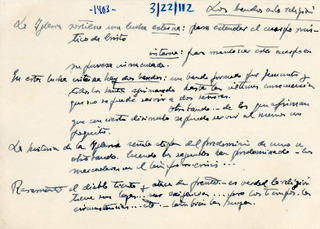 -1983- 3/22/112 Los bandos en la religión
La Iglesia sostiene una lucha externa: para extender el cuerpo mís-
tico de Cristo
interna: para mantener este cuerpo en
su pureza inmaculada.
En esta lucha interna hay dos bandos: un bando formado por
todos los santos afirmando hasta las últimas consecuencias
que no se puede servir a dos señores.
Otro bando - de los que afirman
que con cierto disimulo se puede servir al menos un
poquito.
La historia de la Iglesia oscila del predominio de uno u
otro bando. Cuando los segundos han predominado - los
mercaderes en el templo
Raramente el diablo tienta de frente - es verdad la religión
tiene sus leyes - sus exigencias ... pero los tiempos - las
circunstancias ... etc - también las